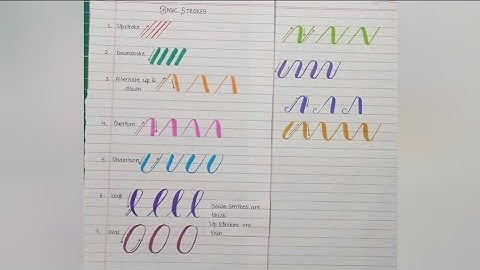 BASIC STROKES
1. Upstroke
2. Downstroke
3. Alternate up &
down
4. Overturn
5. Underturn
6. Loop
Down strokes are
thick
7. Oval
Up strokes are
thin